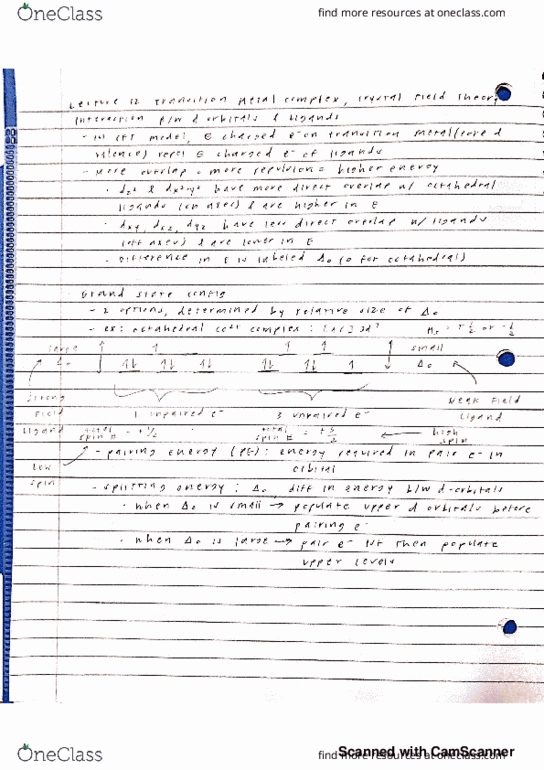 OneClass
find more resources at oneclass.com
Lecture 12 Transition Metal complex, Crystal Field Theory
Interaction b/w d orbitals & Ligands
- in CFT model, ⊖ charged e- on transition metal (core &
valence) repel ⊖ charged e- of ligands
- More overlap = more repulsion = higher energy
· dz² & dx²-y² have more direct overlap w/ octahedral
ligands (on axes) & are higher in E
· dxy, dxz, dyz have less direct overlap w/ ligands
(off axes) & are lower in E
· Difference in E is labeled Δo (o for octahedral)
Ground state config
- 2 options, determined by relative size of Δo
- ex: octahedral complex: [Ar] 3d⁷ Ms = +½ or -½
large small
Δo Δo
Strong Weak Field
Field 1 unpaired e- 3 unpaired e- Ligand
Ligand total spin = +½ total spin = +3/2 high spin
Low - pairing energy (PE): energy required to pair e- in
orbital
spin - splitting energy: Δo diff in energy b/w d-orbitals
· when Δo is small → populate upper d orbitals before
pairing e-
· when Δo is large → pair e- 1st then populate
upper levels
OneClass
find more resources at oneclass.com
Scanned with CamScanner